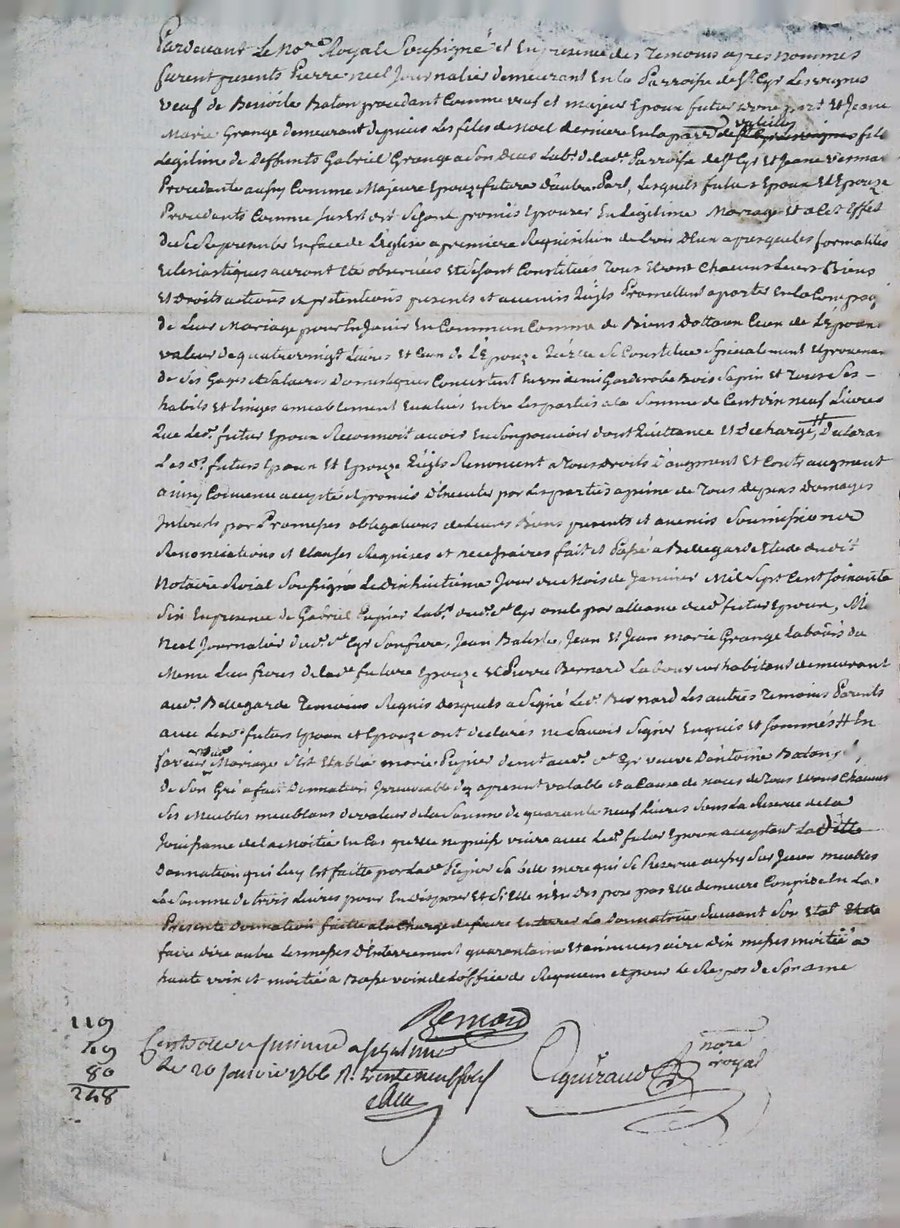 Pardevant Le No.re Royal Soussigné et En presence des Temoins apres nommés
furent presents Pierre neel Journalier demeurant En la Parroisse de St Cyr Les vignes
veuf de Benoite Baton procedant Comme veuf et majeur Epoux futur d'une part Et Jeane
Marie Grange demeurant depuis Les fetes de noel derniere En la parr.e de valeilles St Cyr Les vignes fille
Legitime de deffunts Gabriel Grange a Son deces Lab.r de lad.e Parroisse de St Cyr Et Jeane
Procedante aussy Comme Majeure Epouze future d'autre Part, Lesquels futurs Epoux Et Epouze
Procedants Comme Sus Est dit Se Sont promis Epouser En Legitime Mariage Et a Cet Effet
de Se Representer En face de L'église a premiere Requisition de Lun D'eux apres que les formalités
Eclesiastiques auront Eté observées Et Se Sont Constitués Tous Et un Chacuns Leurs Biens
Et Droits actions et pretentions presents et avenirs Promettent aporter En la Compag.
de Leur Mariage pour En Jouir En Commun Comme de Biens Dottaux Ceux de L'Epoux
valeur de quatre vingt Livres Et Ceux de L'Epouze Se Constitue Specialement Et provenant
de Ses Gages Et Salaires Domestiques Consistent En un demi Garderobe Bois Sapin Et Tous Ses
habits Et Linges amiablement Evalués Entre Les parties a la Somme de Cent dix neuf Livres
Que Led. futur Epoux Reconnoit avoir En Son pouvoir dont Quittance Et Decharge, Declarant
Les d. futurs Epoux Et Epouze Renoncent a Tous Droits D'augment Et Contraugment
ainsy Convenu accepté et promis D'Executer par Les parties a peine de Tous depens Domages
Interets par Promesses obligations de Leurs Biens presents et avenirs Soumissions
Renonciations et Clauses Requises et necessaires fait et Passé a Bellegarde Etude dudit
Notaire Roial Soussigné Le dixhuitieme Jour du Mois de Janvier Mil Sept Cent Soixante
Six En presence de Gabriel Lab.r dud. St Cyr oncle par alliance dud. futur Epoux,
neel Journalier dud. St Cyr Son frere, Jean Batiste, Jean Et Jean marie Grange Laboürs du
Meme Lieu freres de lad.e future Epouze Et Pierre Bernard Laboureur habitant demeurant
aud. Bellegarde Temoins Requis Desquels a Signé Led. Bernard Les autres Temoins Parents
avec Lesd. futurs Epoux et Epouze ont declarés ne Savoir Signer Enquis Et Sommés En
faveur dud. Mariage S'est Etablie marie demt aud. St Cyr veuve D'antoine Baton
de Son Gré a fait Donnation Irrevocable dez apresent valable et a Cause de noces de Tous Et uns Chacuns
Ses Meubles meublans de valeur de La Somme de quarante neuf Livres Sous La Reserve de la
Jouissance de la Moitié En Cas qu'elle ne puisse vivre avec Led. futur Epoux acceptant La Ditte
Donnation qui Luy Est faitte par Lad.e Sa belle mere qui Se Reserve aussy Sur Iceux meubles
La Somme de trois Livres pour En disposer Et Si Elle n'En dispose pas Elle demeure Comprise En La
Presente donnation faitte a la Charge de faire Enterrer La donnatrice Suivant Son Etat Et de
faire dire outre Les messes D'Enterrement quarantaine Et anniversaire dix messes moitié a
haute voix et moitié a Basse voix de L'office de Requiem et pour Le Repos de Son ame
119
49
80
248
Bernard
Controllé a
Le 20 Janvier 1766 R. vingt neuf sols
Eguiraud nore royal